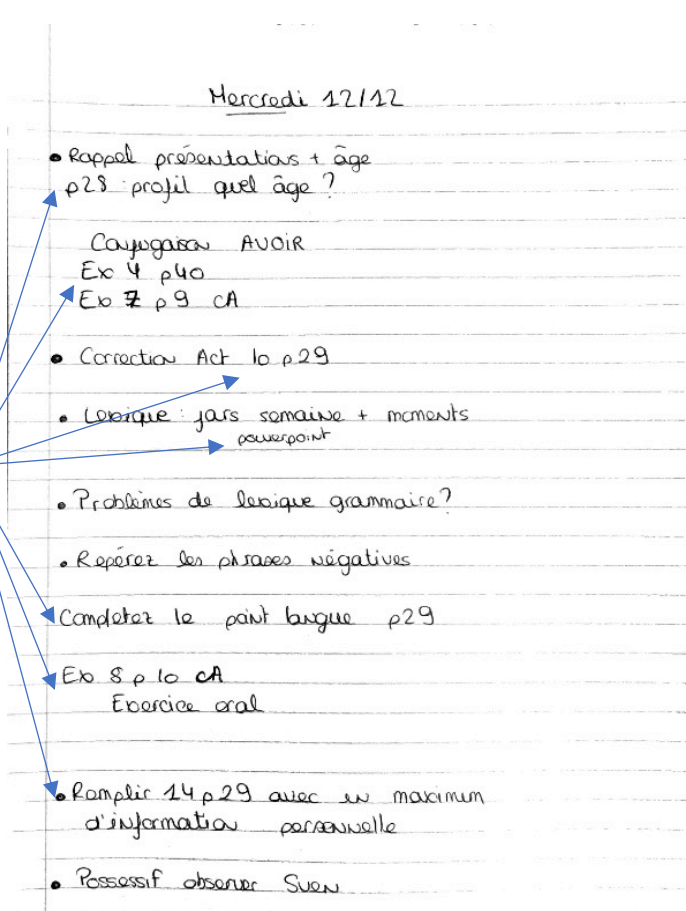 Mercredi 12/12
• Rappel présentations + âge
p28 profil quel âge ?
Conjugaison AVOIR
Ex 4 p40
Ex 7 p9 CA
• Correction Act 10 p29
• Lexique : jours semaine + moments
powerpoint
• Problèmes de lexique grammaire?
• Repérez les phrases négatives
Completez le point langue p29
Ex 8 p10 CA
Exercice oral
• Remplir 14 p29 avec un maximum
d'information personnelle
• Possessif observer Sven